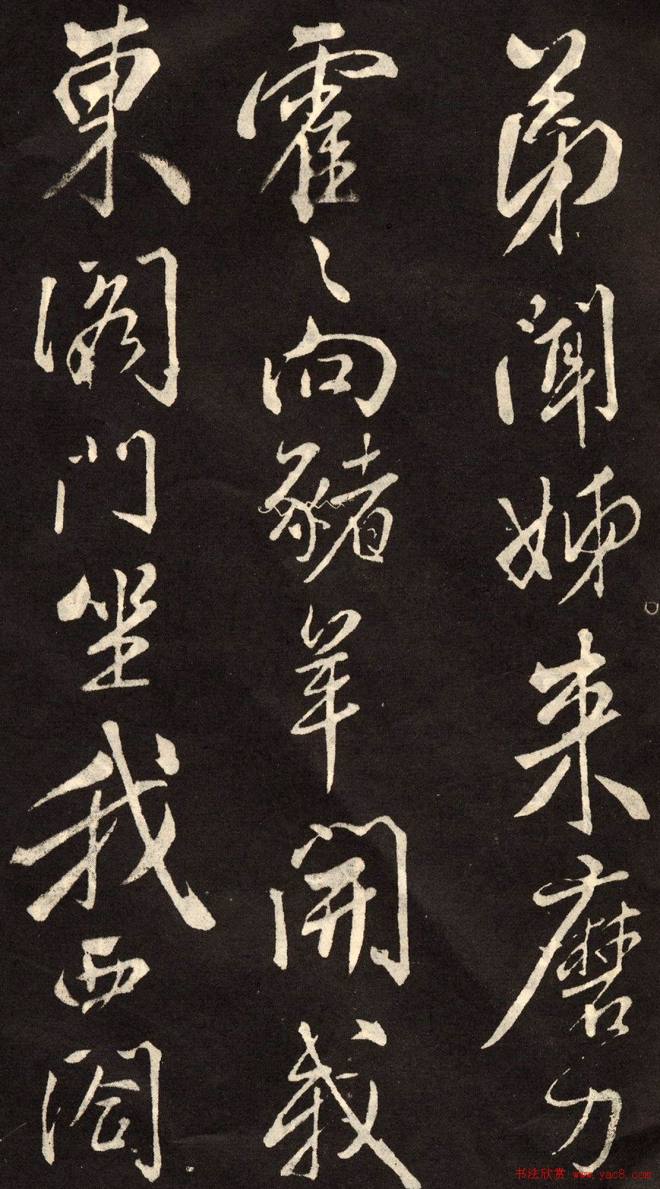 弟聞姊来磨刀
霍〻向豬羊開我
東閣門坐我西閤
书法欣赏 www.yac8.com